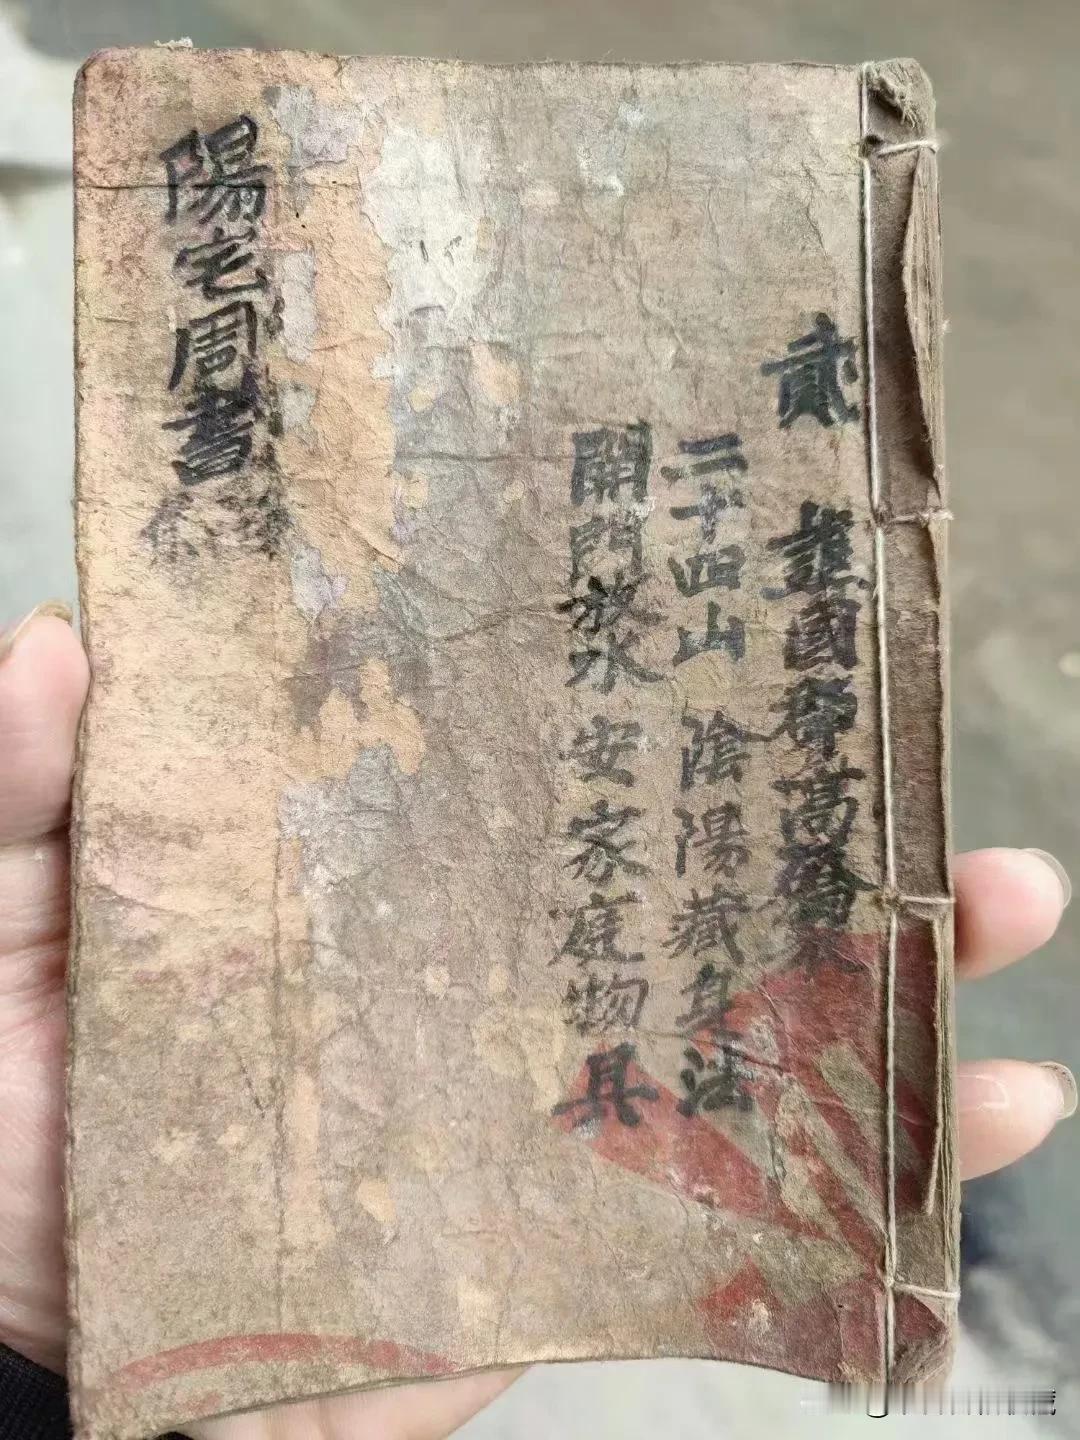 貳
國 高
二十四山 陰陽藏身法
開門放水 安家庭物具
陽宅周書